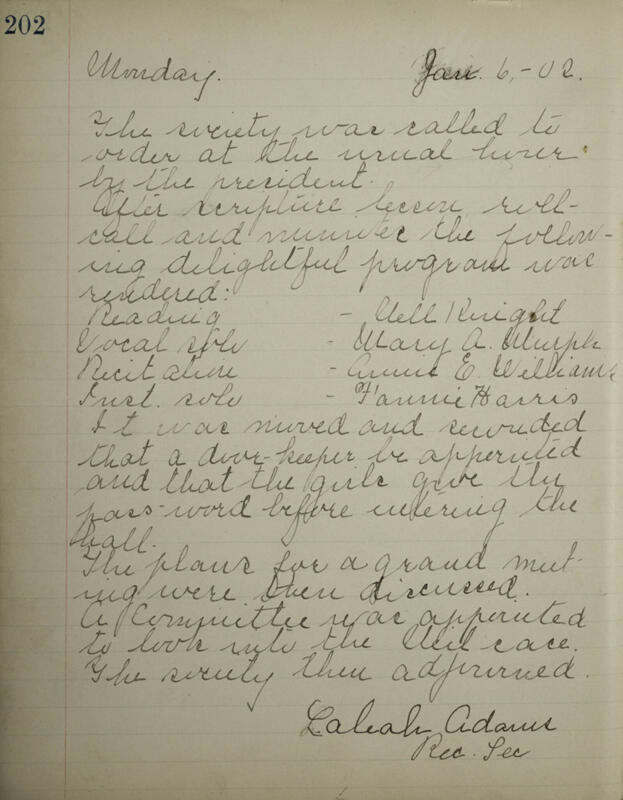 202
Monday. Jan. 6,-02.
The society was called to
order at the usual hour
by the president.
After scripture lesson, roll-
call and minutes the follow-
ing delightful program was
rendered:
Reading - Nell Knight
Vocal solo - Mary A. Murph
Recitation - Annie E. Williams
Inst. solo - Fannie Harris
It was moved and seconded
that a door-keeper be appointed
and that the girls give the
pass-word before entering the
hall.
The plans for a grand meet-
ing were then discussed.
A Committee was appointed
to look into the case.
The society then adjourned.
Laleah Adams
Rec. Sec